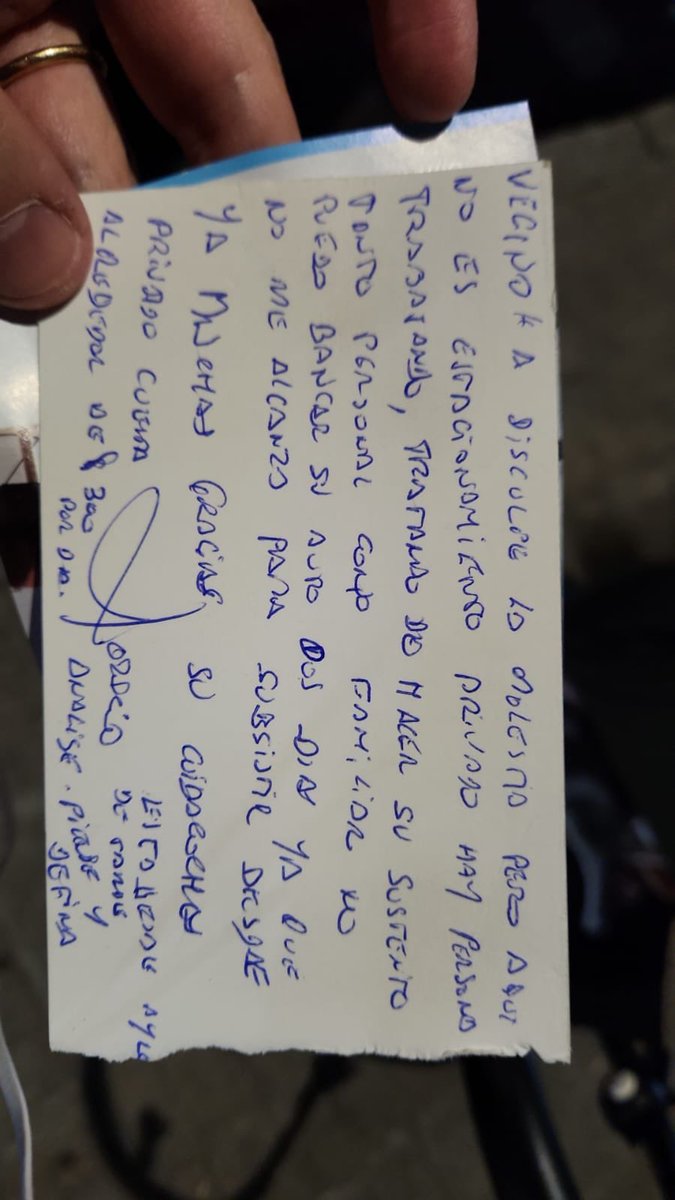 VECINO/A DISCULPE LA MOLESTIA PERO AQUI
NO ES ESTACIONAMIENTO PRIVADO HAY PERSONA
TRABAJANDO, TRATANDO DE HACER SU SUSTENTO
TANTO PERSONAL COMO FAMILIAR NO
PUEDO BANCAR SU AUTO DOS DIAS YA QUE
NO ME ALCANZA PARA SUBSISTIR DESDE
YA MUCHAS GRACIAS. SU CUIDACOCHES
PRIVADO CUESTA
ALREDEDOR DE $ 300
POR DIA.
HORACIO
DE TARDE
ANALISE. PIENSE Y
DEFINA